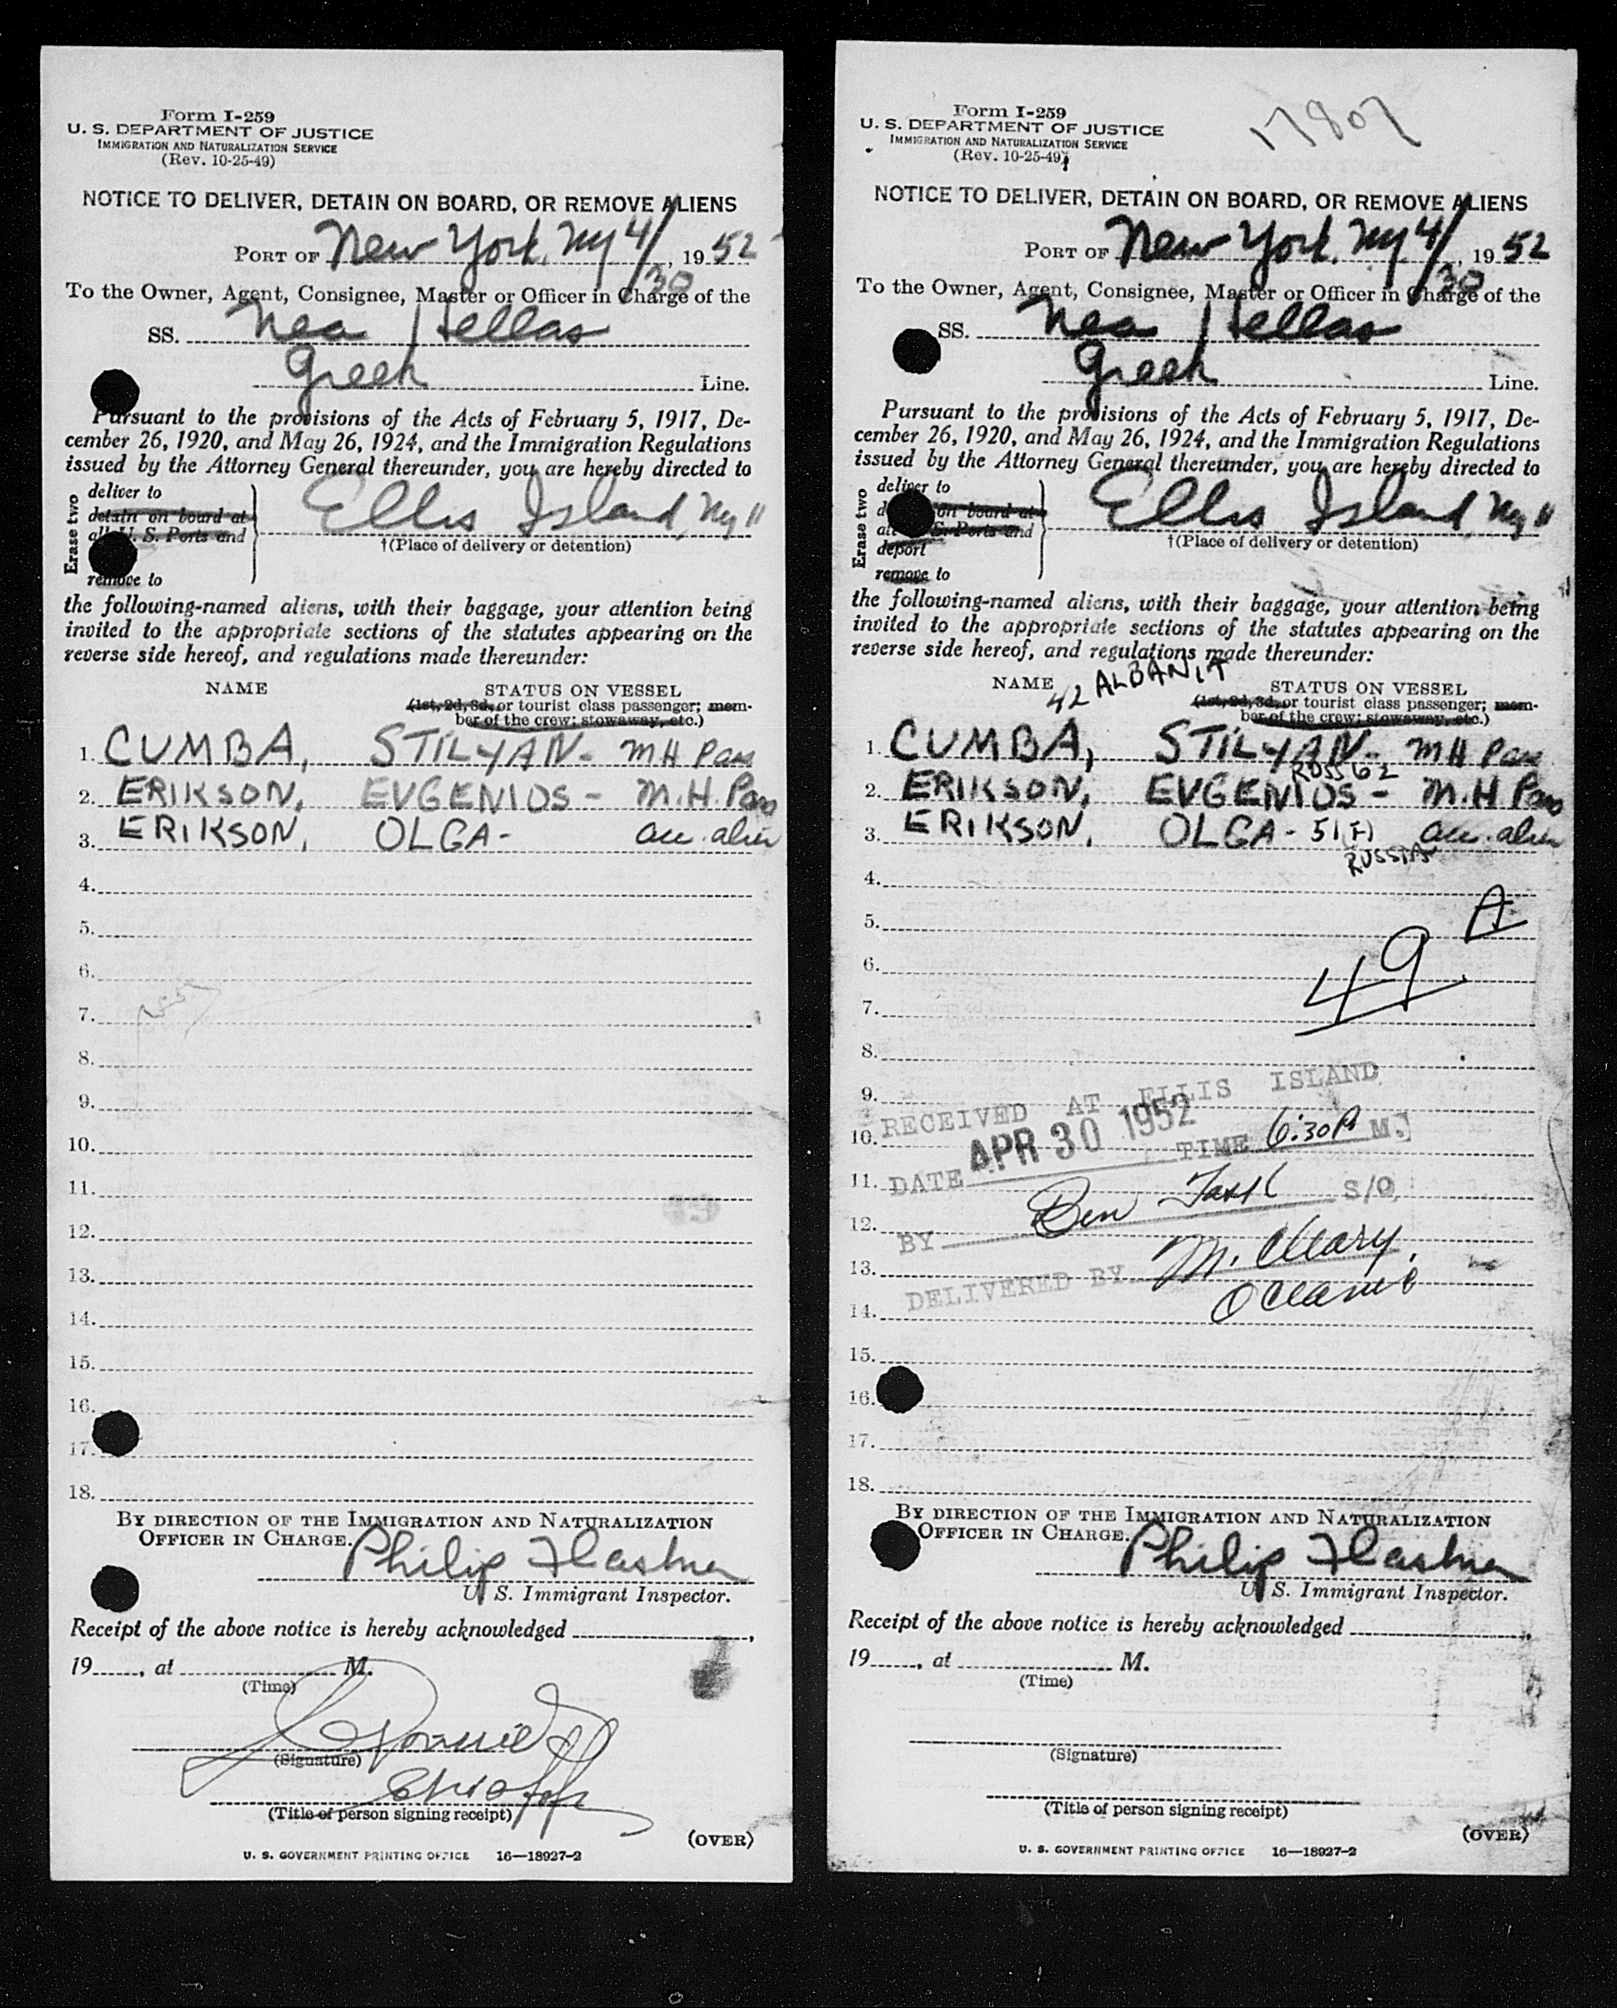 Form I-259
U. S. DEPARTMENT OF JUSTICE
IMMIGRATION AND NATURALIZATION SERVICE
(Rev. 10-25-49)
NOTICE TO DELIVER, DETAIN ON BOARD, OR REMOVE ALIENS
PORT OF New York, Ny 4/30, 1952
To the Owner, Agent, Consignee, Master or Officer in Charge of the
SS. Nea Hellas
Greek Line.
Pursuant to the provisions of the Acts of February 5, 1917, De-
cember 26, 1920, and May 26, 1924, and the Immigration Regulations
issued by the Attorney General thereunder, you are hereby directed to
Erase two
deliver to
detain on board at
all U. S. Ports and
remove to
Ellis Island, Ny "
†(Place of delivery or detention)
the following-named aliens, with their baggage, your attention being
invited to the appropriate sections of the statutes appearing on the
reverse side hereof, and regulations made thereunder:
NAME STATUS ON VESSEL
(1st, 2d, 3d, or tourist class passenger; mem-
ber of the crew; stowaway, etc.)
1. CUMBA, STILYAN - MH Pass
2. ERIKSON, EVGENIOS - M.H. Pass
3. ERIKSON, OLGA - acc. alien
4.
5.
6.
7.
8.
9.
10.
11.
12.
13.
14.
15.
16.
17.
18.
BY DIRECTION OF THE IMMIGRATION AND NATURALIZATION
OFFICER IN CHARGE.
Philip Flashner
U. S. Immigrant Inspector.
Receipt of the above notice is hereby acknowledged ,
19 , at M.
(Time)
(Signature)
(Title of person signing receipt)
(OVER)
U. S. GOVERNMENT PRINTING OFFICE 16—18927-2
17807
Form I-259
U. S. DEPARTMENT OF JUSTICE
IMMIGRATION AND NATURALIZATION SERVICE
(Rev. 10-25-49)
NOTICE TO DELIVER, DETAIN ON BOARD, OR REMOVE ALIENS
PORT OF New York, Ny. 4/30, 1952
To the Owner, Agent, Consignee, Master or Officer in Charge of the
SS. Nea Hellas
Greek Line.
Pursuant to the provisions of the Acts of February 5, 1917, De-
cember 26, 1920, and May 26, 1924, and the Immigration Regulations
issued by the Attorney General thereunder, you are hereby directed to
Erase two
deliver to
on board at
all S. Ports and
deport
remove to
Ellis Island, Ny "
†(Place of delivery or detention)
the following-named aliens, with their baggage, your attention being
invited to the appropriate sections of the statutes appearing on the
reverse side hereof, and regulations made thereunder:
NAME 42 ALBANIA STATUS ON VESSEL
(1st, 2d, 3d, or tourist class passenger; mem-
ber of the crew; stowaway, etc.)
1. CUMBA, STILYAN - MH Pass
RUSS 62
2. ERIKSON, EVGENIOS - M.H Pass
3. ERIKSON, OLGA - 51(F) acc. alien
RUSSIA
4.
5. A
6. 49
7.
8.
9.
RECEIVED AT ELLIS ISLAND
10.
DATE APR 30 1952 TIME 6:30 P. M.
11.
12.
BY Ben S/O
13.
DELIVERED BY M. Cleary.
14.
15.
16.
17.
18.
BY DIRECTION OF THE IMMIGRATION AND NATURALIZATION
OFFICER IN CHARGE.
Philip Flashner
U. S. Immigrant Inspector.
Receipt of the above notice is hereby acknowledged ,
19 , at M.
(Time)
(Signature)
(Title of person signing receipt)
(OVER)
U. S. GOVERNMENT PRINTING OFFICE 16—18927-2